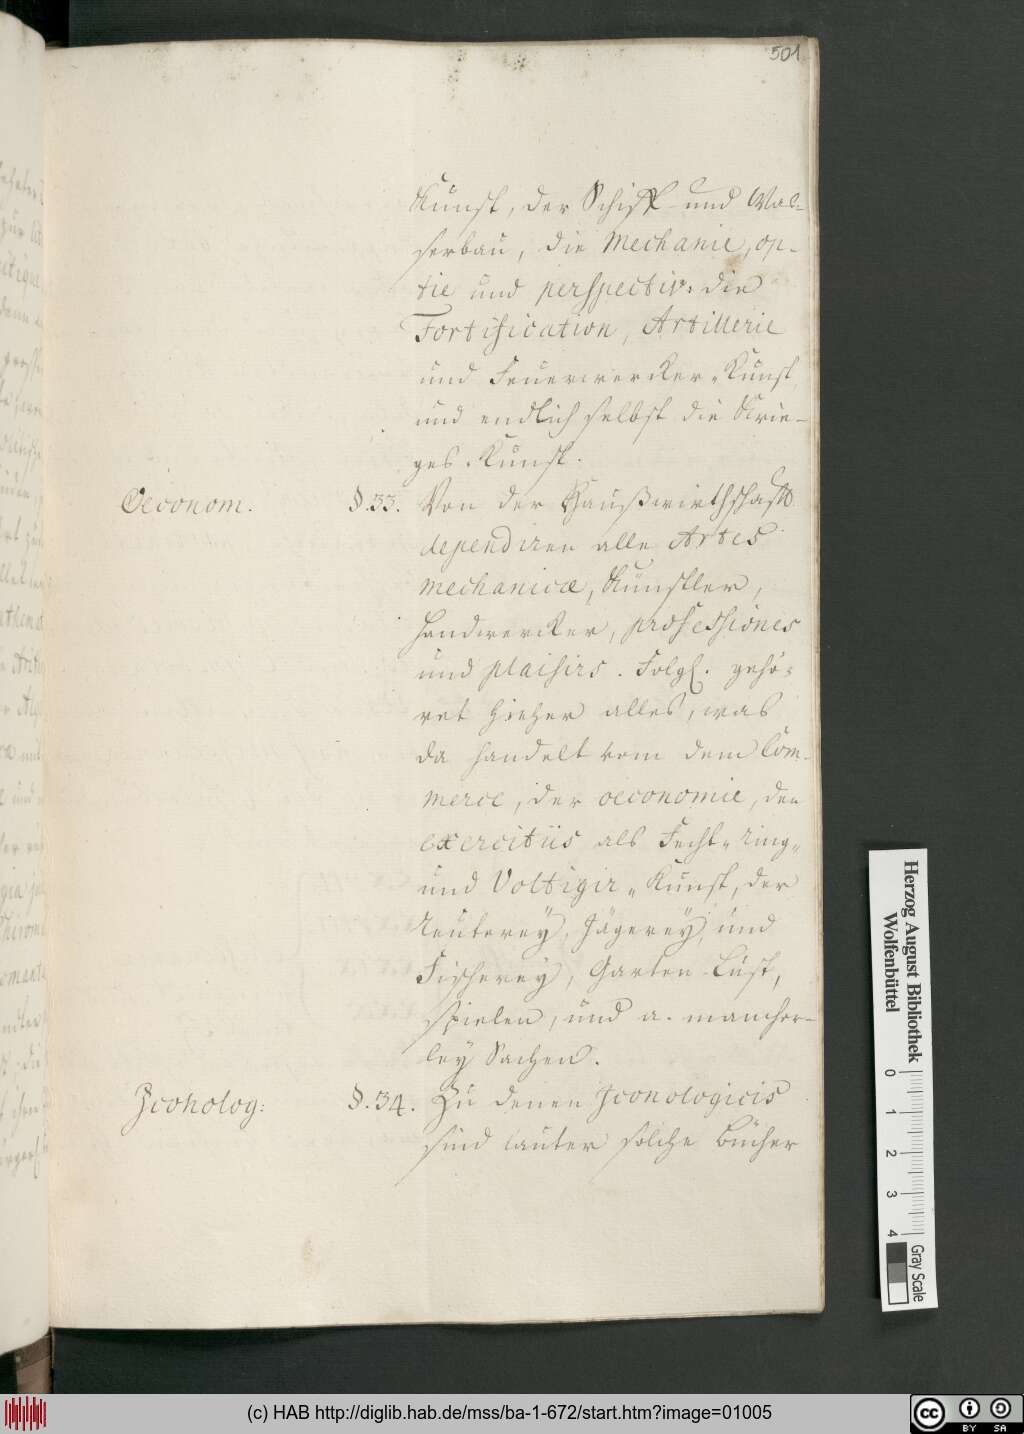 501
Kunst, der Schiff- und Was-
serbau, die Mechanic, op-
tic und perspectiv: die
Fortification, Artillerie
und Feuerwercker-Kunst,
und endlich selbst die Krie-
ges-Kunst.
Oeconom. §.33. Von der Haußwirthschafft
dependiren alle Artes
mechanicæ, Künstler,
Handwercker, professiones
und plaisirs. Folgl. gehö-
ret hieher alles, was
da handelt vom dem Com-
merce, der oeconomie, den
exercitiis als Fecht- Ring-
und Voltigir-Kunst, der
Reuterey, Jägerey, und
Fischerey, Garten-Lust,
Spielen, und a. mancher-
ley Sachen.
Iconolog: §.34. Zu denen Iconologicis
sind lauter solche Bücher
Herzog August Bibliothek
Wolfenbüttel
0 1 2 3 4
Gray Scale
(c) HAB http://diglib.hab.de/mss/ba-1-672/start.htm?image=01005
cc BY SA